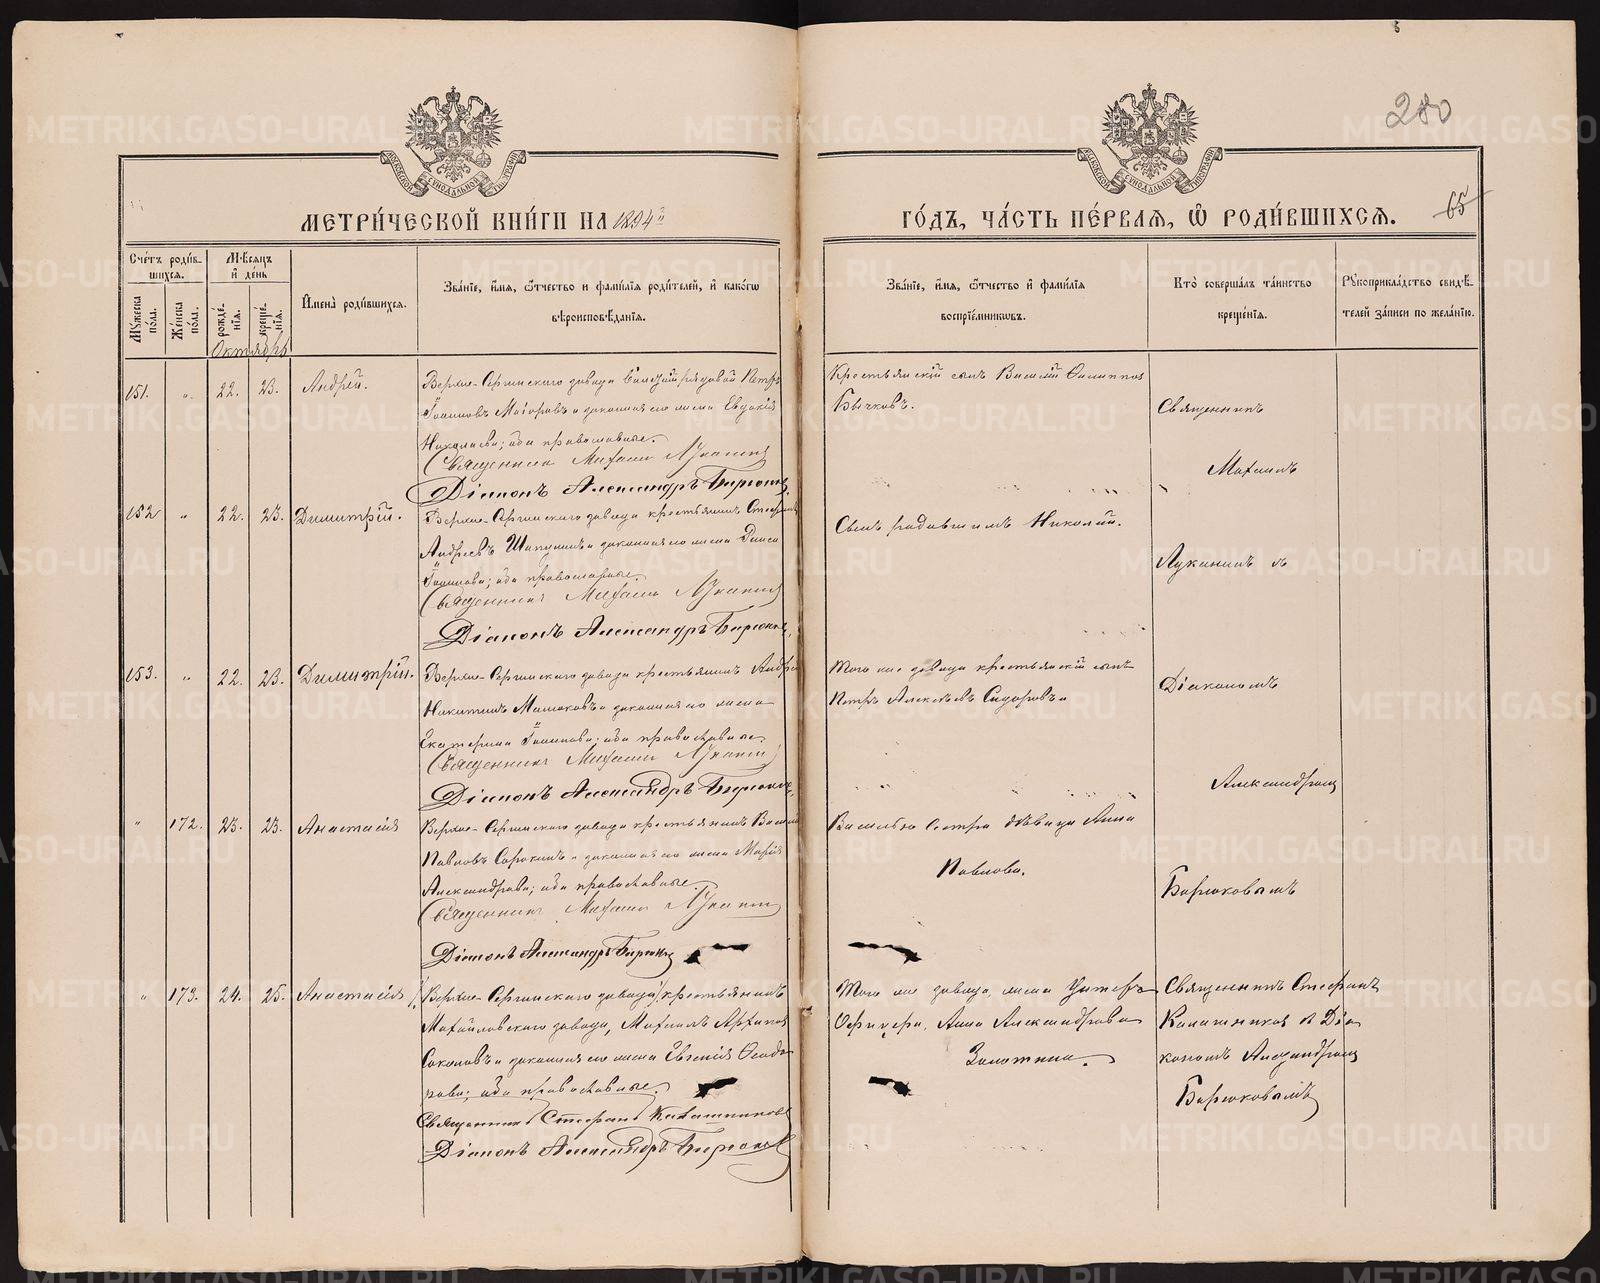 280
65
МЕТРИ́ЧЕСКОЙ КНИ́ГИ НА 1894 й
ГО́ДЪ, ЧА́СТЬ ПЕ́РВАѦ, Ѽ РОДИ́ВШИХСѦ.
Сче́тъ роди́в-
шихсѧ.
Мꙋжеска по́ла.
Же́нска по́ла.
Мѣ́сѧцъ
и҆ де́нь
рожде́-
нїѧ.
креще́-
нїѧ.
Октябрь
И҆мена̀ роди́вшихсѧ.
Зва́нїе, и҆́мѧ, ѻ҆́тчество и҆ фами́лїѧ роди́телей, и҆ како́гѡ
вѣроисповѣ́данїѧ.
Зва́нїе, и҆́мѧ, ѻ҆́тчество и҆ фами́лїѧ
воспрїе́мникѡвъ.
Кто̀ соверша́лъ та́инство
креще́нїѧ.
Рꙋкоприкла́дство свидѣ́-
телей за́писи по жела́нїю.
151. " 22. 23. Андрей.
Верхне-Сергинскаго завода рядовой Петръ
Іоанновъ Маіоровъ и законная его жена Евдокія
Николаева; оба православные.
Священникъ Михаилъ Луканинъ
Діаконъ Александръ Бирюковъ
Крестьянскій сынъ Василій Филиппов
Бычковъ.
152 " 22. 23. Димитрій.
Верхне-Сергинскаго завода крестьянинъ Стефанъ
Андреевъ и законная его жена
Іоаннова; оба православные.
Священникъ Михаилъ Луканинъ
Діаконъ Александръ Бирюковъ
Сынъ Николай.
153. " 22. 23. Димитрій.
Верхне-Сергинскаго завода крестьянинъ Андрей
Никитинъ и законная его жена
Екатерина Іоаннова; оба православные.
Священникъ Михаилъ Луканинъ
Діаконъ Александръ Бирюковъ
Того же завода крестьянскій сынъ
Петръ Алексѣевъ Сидоровъ
Священникъ
Михаилъ
Луканинъ съ
Діакономъ
Александромъ
Бирюковымъ
" 172. 23. 23. Анастасія
Верхне-Сергинскаго завода крестьянинъ Василій
Павловъ Сорокинъ и законная его жена Марія
Александрова; оба православные.
Священникъ Михаилъ Луканинъ
Діаконъ Александръ Бирюковъ
Василью сестра дѣвица Анна
Павлова.
" 173. 24. 25. Анастасія
Верхне-Сергинскаго завода, крестьянинъ
Михайловскаго завода, Михаилъ Архипов
Соколовъ и законная его жена Евгенія Ѳеодо-
рова; оба православные.
Священникъ Стефанъ Калашниковъ
Діаконъ Александръ Бирюковъ
Того же завода, жена Унтеръ
Офицера, Анна Александрова
Золотина.
Священникъ Стефанъ
Калашников съ Діа-
кономъ Александромъ
Бирюковымъ
METRIKI.GASO-URAL.RU